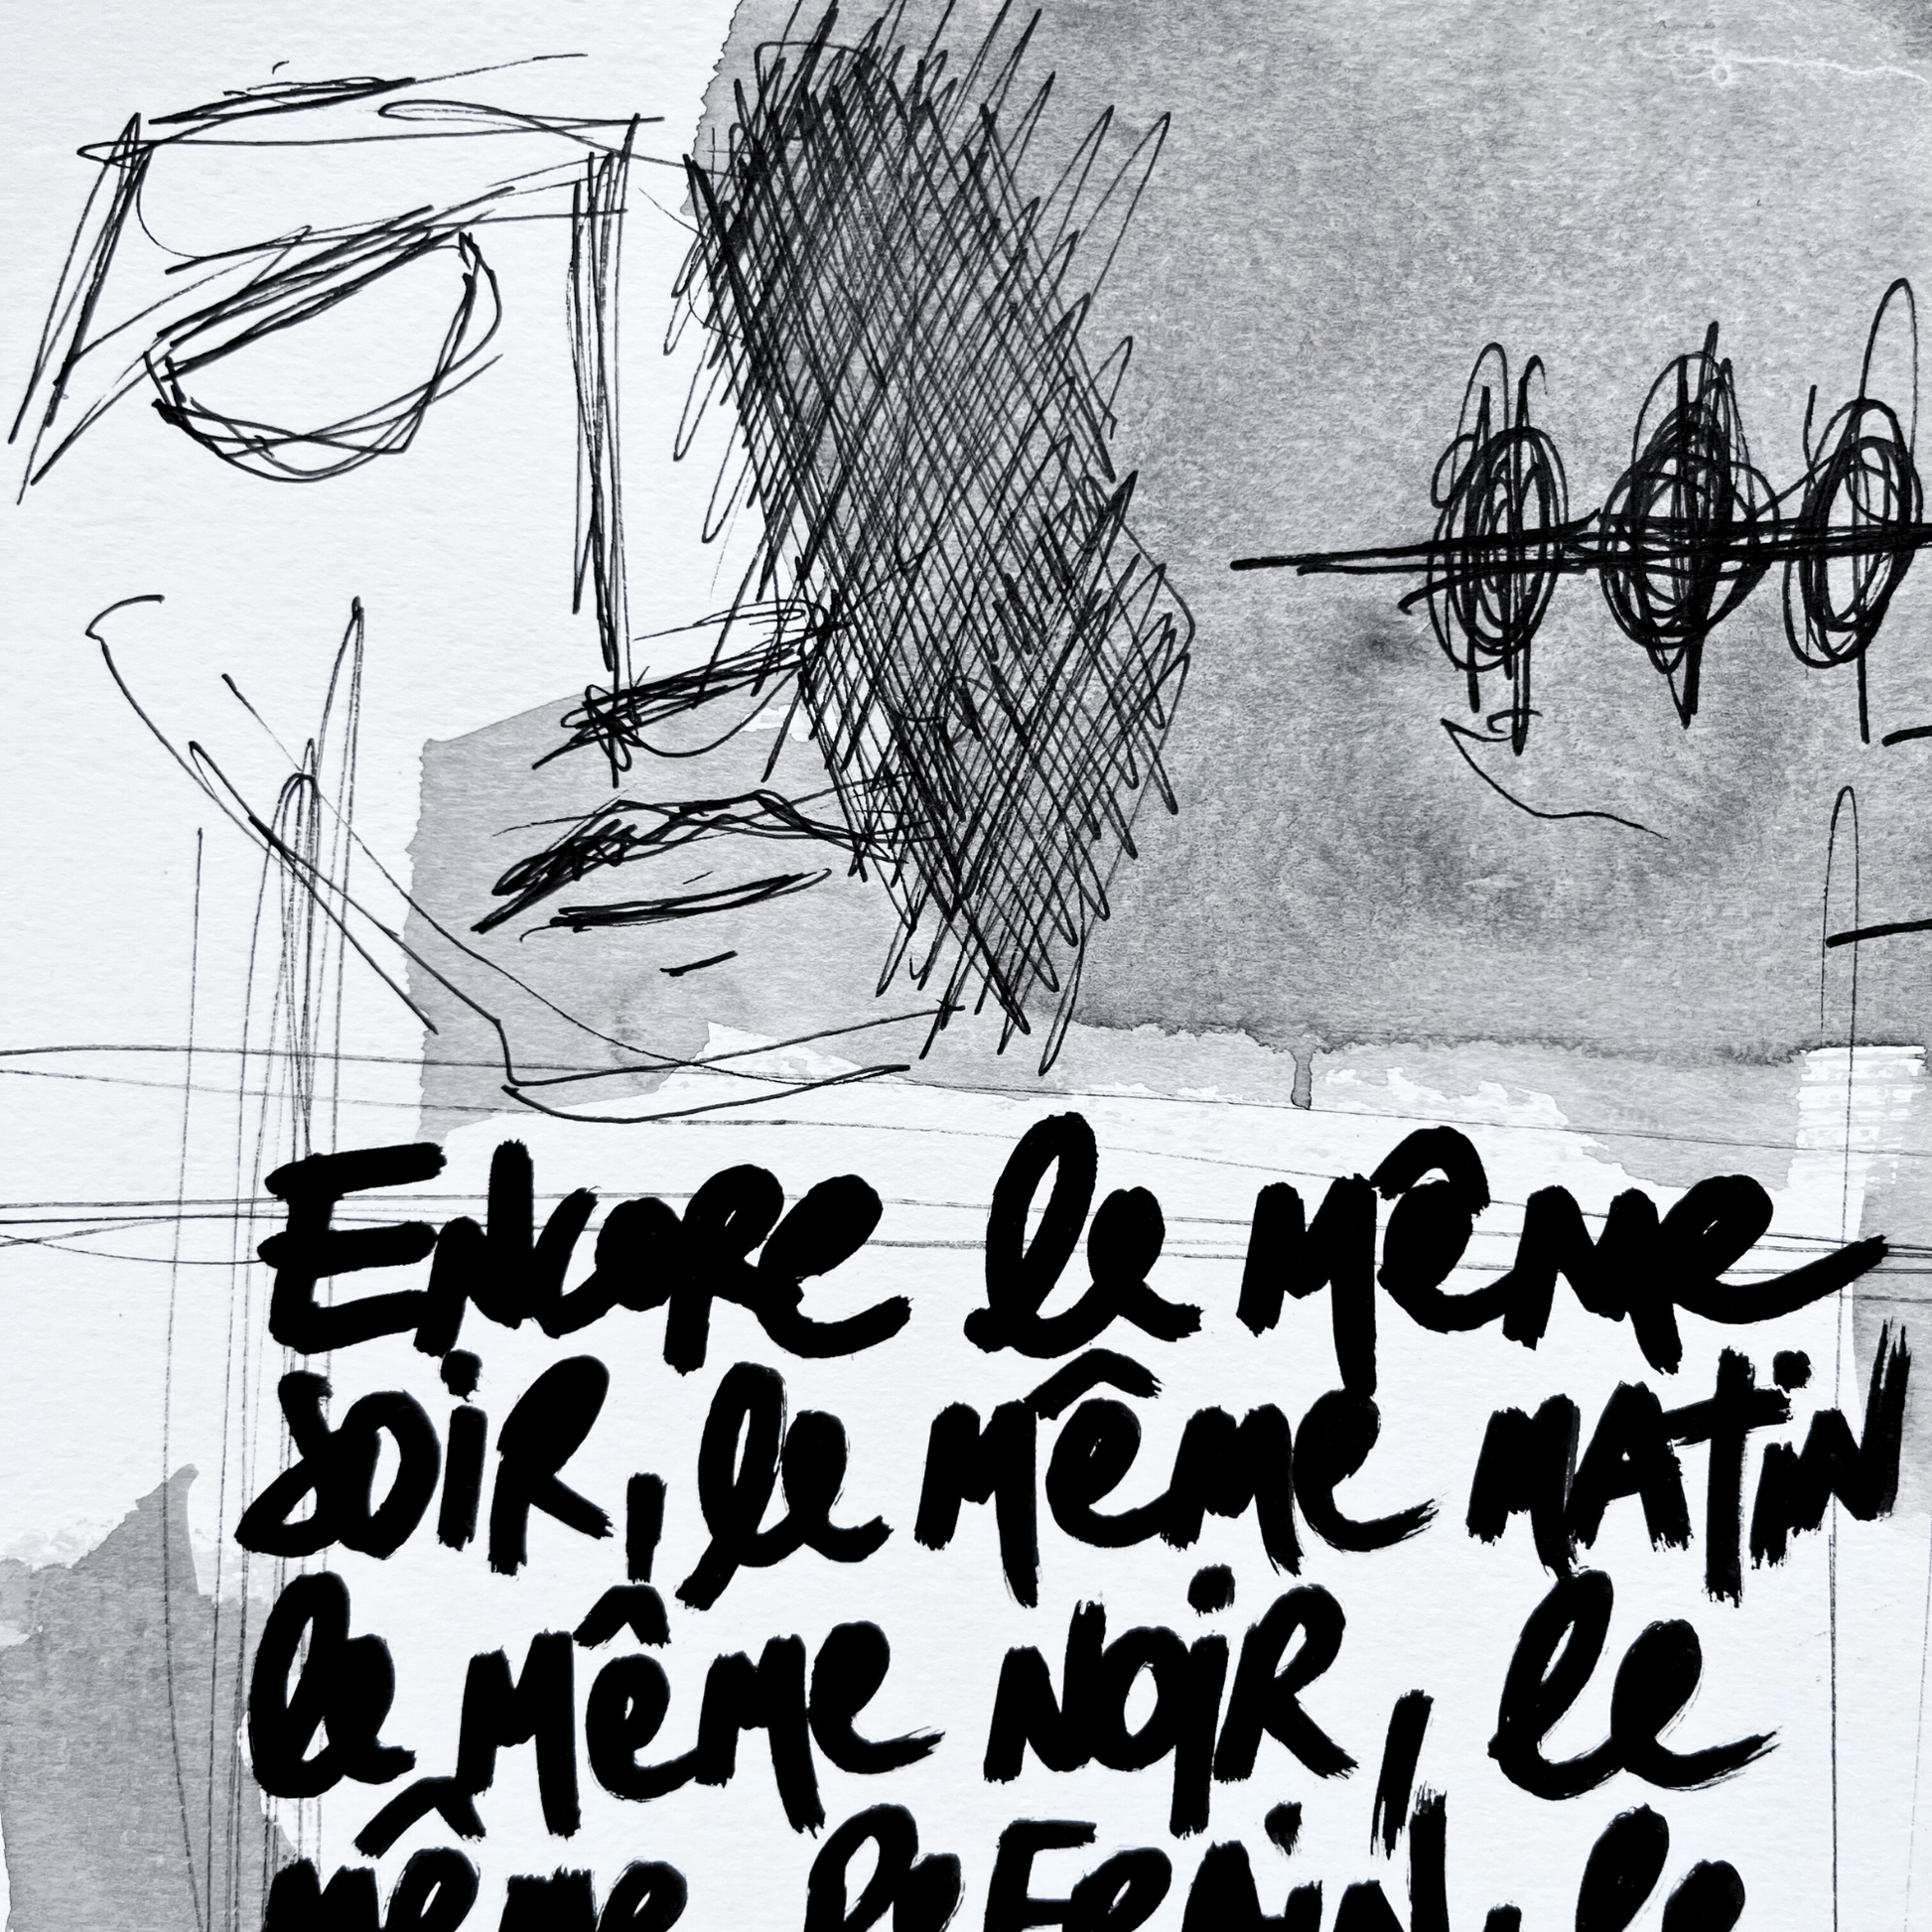 Encore le même
soir, le même matin
le même noir, le
même refrain, le